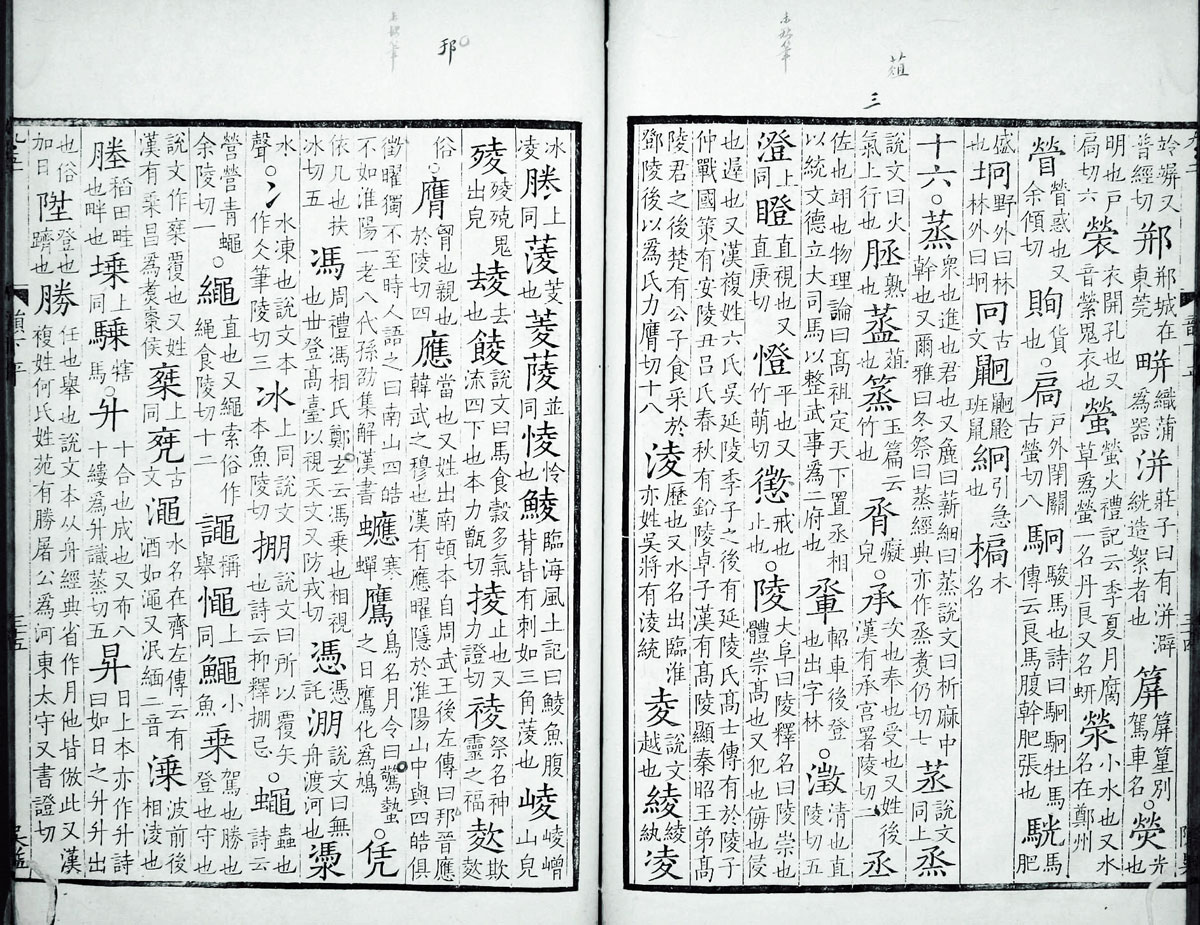 竛竮又普經切 郱郱城在東莞 畊織蒲為器 洴莊子曰有洴澼絖造絮者也 箳箳篂別駕車名 ○熒光也
明也戶扃切六 褮衣開孔也又音縈鬼衣也 螢螢火禮記云季夏月腐草為螢一名丹良又名蚈 滎小水也又水名在鄭州
䁝䁝惑也又余傾切 貨也 ○扃戶外閉關古螢切八 駉駿馬也詩曰駉駉牡馬傳云良馬腹幹肥張也 駫馬肥
盛也 坰野外曰林林外曰坰 冋古文 鼳鼠 絅引急也 木名
十六○蒸衆也進也君也又麁曰薪細曰蒸說文曰析麻中幹也又爾雅曰冬祭曰蒸經典亦作烝煮仍切七 同上 烝說文曰火
氣上行也 脀熟也 葅也 篜玉篇云竹也 脀癡皃 ○承次也奉也受也又姓後漢有承宮署陵切二 丞
佐也翊也物理論曰髙祖定天下置丞相以統文德立大司馬以整武事為二府也 軺車後登也出字林 ○澂清也直陵切五
澄上同 瞪直視也又直庚切 憕平也又竹萌切 懲戒也止也 ○陵大阜曰陵釋名曰陵崇也體崇髙也又犯也侮也侵
也遲也又漢複姓六氏吳延陵季子之後有延陵氏髙士傳有於陵子仲戰國策有安陵丑呂氏春秋有鉛陵卓子漢有髙陵顯秦昭王弟髙
陵君之後楚有公子食采於鄧陵後以爲氏力膺切十八 淩歷也又水名出臨淮亦姓吳將有淩統 夌說文越也 綾綾紈 凌
冰上 勝上同 蔆芰 菱䔖並上同 㥄怜也 鯪臨海風土記曰鯪魚腹背皆有刺如三角菱也 崚崚嶒山皃
殘殑鬼出皃 去也 餕說文曰馬食穀多氣流四下也本力甑切 掕止也又力證切 祾祭名神靈之福 欺
俗 ○膺胷也親也於陵切四 應當也又姓出南頓本自周武王後左傳曰邘晉應韓武之穆也漢有應曜隱於淮陽山中與四皓俱
徵曜獨不至時人語之曰南山四皓不如淮陽一老八代孫劭集解漢書 寒蟬 鷹鳥名月令曰驚蟄之日鷹化為鳩 ○凭
依几也扶冰切五 馮周禮馮相氏鄭玄云馮乗也相視也世登髙臺以視天文又防戎切 憑憑託 淜說文曰無舟渡河也 凴
水 冫水凍也說文本作仌筆陵切三 冰上同說文本魚陵切 掤說文曰所以覆矢也詩云抑釋掤忌 ○蠅蟲也詩云
聲
營營青蠅余陵切一 ○繩直也又繩索俗作縄食陵切十二 譝稱舉 憴上同 鱦小魚 乗駕也勝也登也守也
說文作椉覆也又姓漢有乗昌為煑棗侯 椉上同 古文 澠水名在齊左傳云有酒如澠又泯緬二音 溗波前後相淩也
塍稻田畦也畔也 堘上同 騬犗馬 ○升十合也成也又布八十縷為升識蒸切五 昇日上本亦作升詩曰如日之升升出
也俗加日 陞登也躋也 勝任也舉也說文本从舟經典省作月他皆倣此又漢複姓何氏姓苑有勝屠公為河東太守又書證切
邘
葅
三